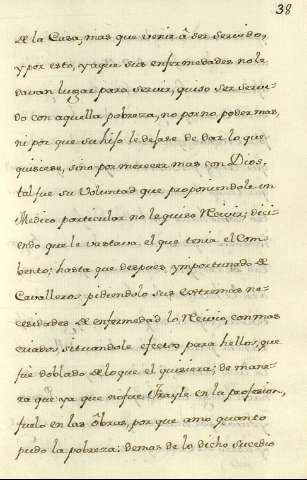 38
de la Cassa, mas que venir â ser servido,
y por esto, yaque sus enfermedades no le
davan lugar para servir, quiso ser servi-
do con aquella pobreza, no por no poder mas,
ni por que su hijo le dejase de dar lo que
quisiese, sino por merecer mas con Dios,
tal fue su Voluntad que proponiendole un
Medico particular no le quiso Recivir; dici-
endo que le vastava el que tenia el Com-
bento; hasta que despues ymportunado de
Cavalleros pidiendolo sus extremas ne-
cesidades de enfermedad lo Recivio, con mas
criados, situandole efectos para hellos, que
fue doblado de lo que el quisiera; de mane-
ra que ya que no fue Frayle en la profesion,
fuelo en las ôbras, por que amo quanto
pudo la pobreza; demas de lo dicho sucedio